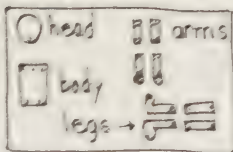 head arms
body
legs →